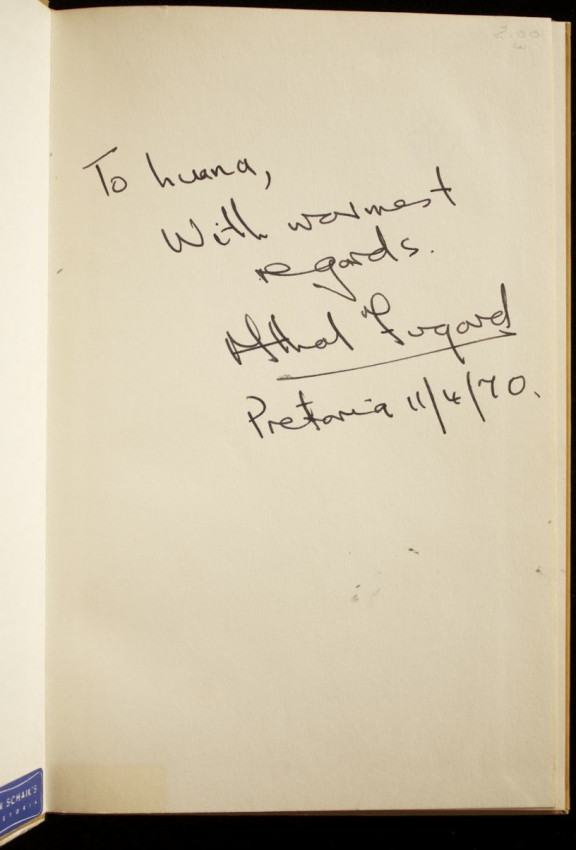 2.00
To Luana,
With warmest
regards.
Athol Fugard
Pretoria 11/4/70.
SCHAIK'S